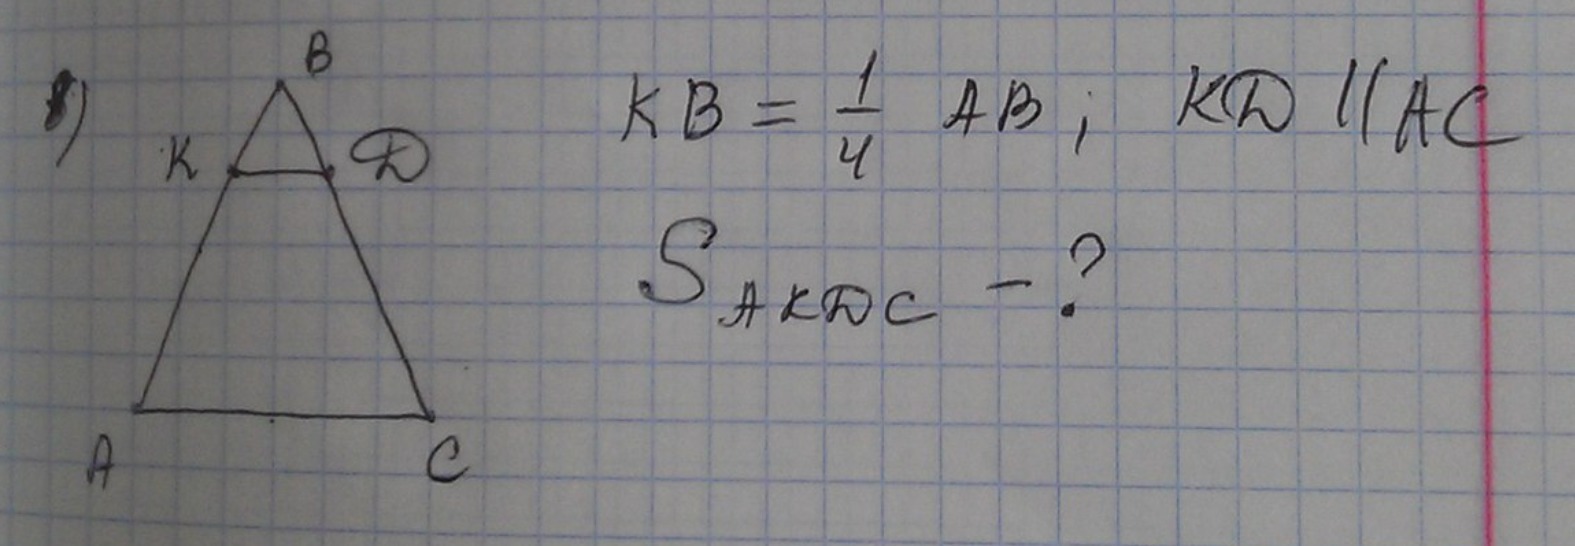 в)
B
K D
A C
KB = 1/4 AB ; KD || AC
S AKDC - ?